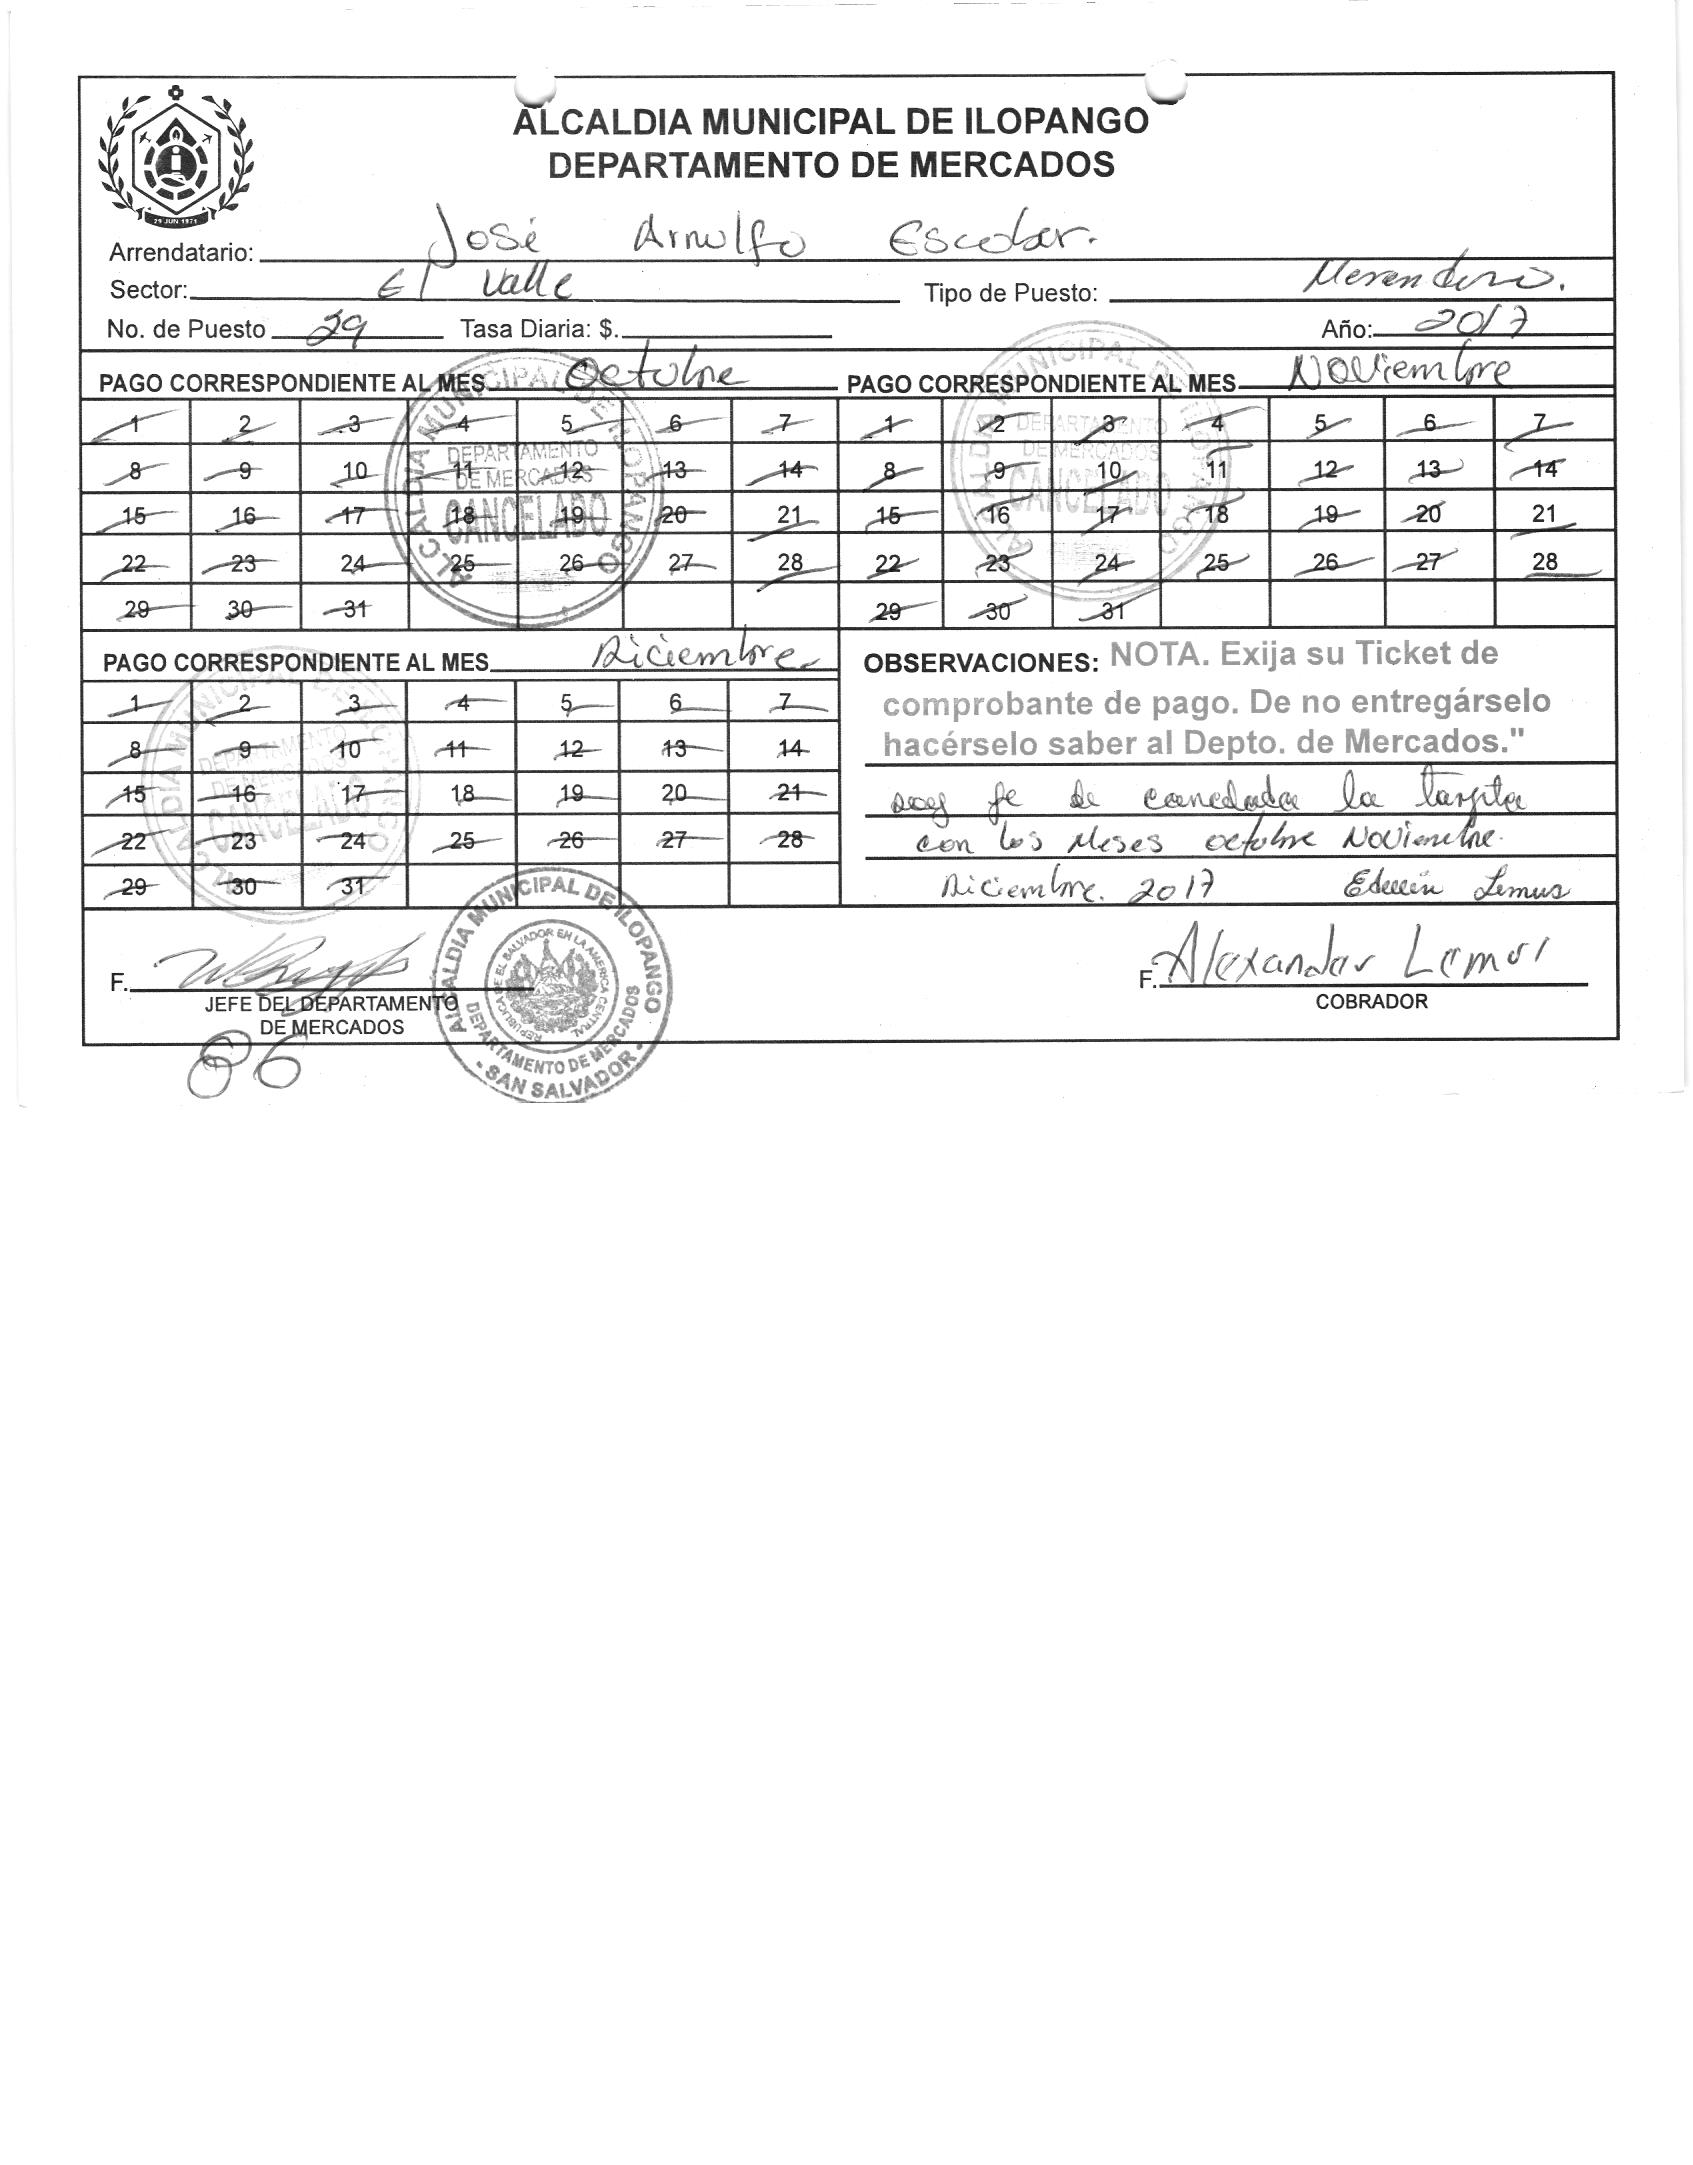 ALCALDIA MUNICIPAL DE ILOPANGO
DEPARTAMENTO DE MERCADOS
29 JUN 1971
Arrendatario: José Arnulfo Escobar.
Sector: El Valle Tipo de Puesto: Merendero.
No. de Puesto 29 Tasa Diaria: $. Año: 2017
PAGO CORRESPONDIENTE AL MES Octubre
1 2 3 4 5 6 7
8 9 10 11 12 13 14
15 16 17 18 19 20 21
22 23 24 25 26 27 28
29 30 31
ALCALDIA MUNICIPAL DE ILOPANGO
DEPARTAMENTO
DE MERCADOS
CANCELADO
PAGO CORRESPONDIENTE AL MES Noviembre
1 2 3 4 5 6 7
8 9 10 11 12 13 14
15 16 17 18 19 20 21
22 23 24 25 26 27 28
29 30 31
ALCALDIA MUNICIPAL DE ILOPANGO
DEPARTAMENTO
DE MERCADOS
CANCELADO
PAGO CORRESPONDIENTE AL MES Diciembre
1 2 3 4 5 6 7
8 9 10 11 12 13 14
15 16 17 18 19 20 21
22 23 24 25 26 27 28
29 30 31
ALCALDIA MUNICIPAL DE ILOPANGO
DEPARTAMENTO
DE MERCADOS
CANCELADO
OBSERVACIONES: NOTA. Exija su Ticket de
comprobante de pago. De no entregárselo
hacérselo saber al Depto. de Mercados."
doy fe de cancelada la tarjeta
con los Meses octubre Noviembre.
Diciembre. 2017 Edwin Lemus
F.
JEFE DEL DEPARTAMENTO
DE MERCADOS
86
ALCALDIA MUNICIPAL DE ILOPANGO
REPUBLICA DE EL SALVADOR EN LA AMERICA CENTRAL
DEPARTAMENTO DE MERCADOS
- SAN SALVADOR -
F. Alexander Lemus
COBRADOR